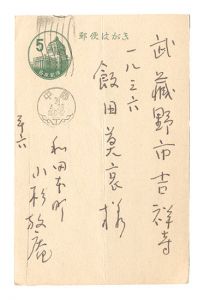 郵便はがき
5
武藏野市吉祥寺
一八三六
飯田莫哀様
和田本町
小杉放庵